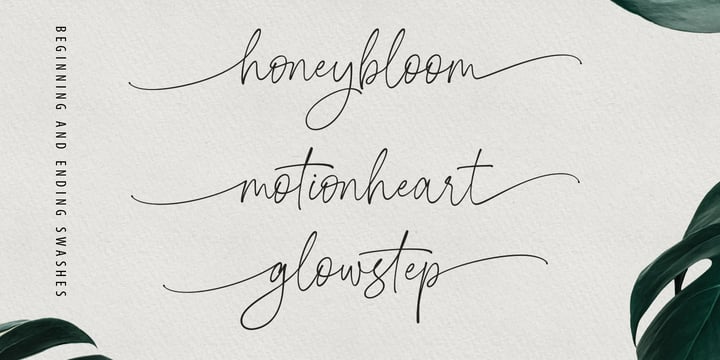 BEGINNING AND ENDING SWASHES
honeybloom
motionheart
glowstep